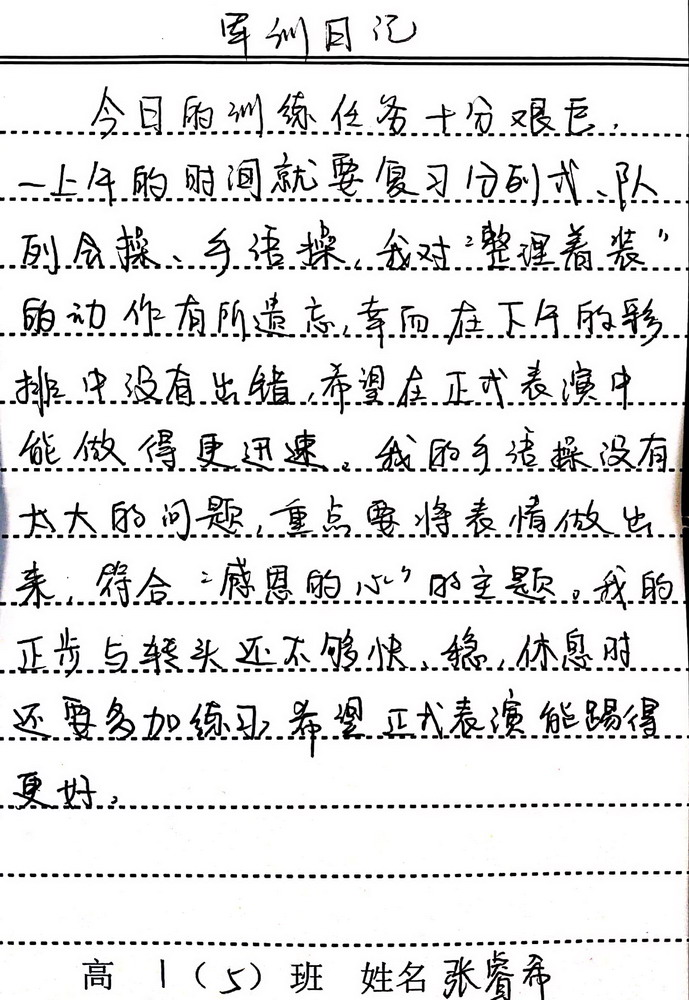 军训日记
今日的训练任务十分艰巨,
一上午的时间就要复习分列式、队
列会操、手语操,我对“整理着装”
的动作有所遗忘,幸而在下午的彩
排中没有出错,希望在正式表演中
能做得更迅速。我的手语操没有
太大的问题,重点要将表情做出
来,符合“感恩的心”的主题。我的
正步与转头还不够快、稳,休息时
还要多加练习,希望正式表演能踢得
更好。
高 1(5)班 姓名 张睿希